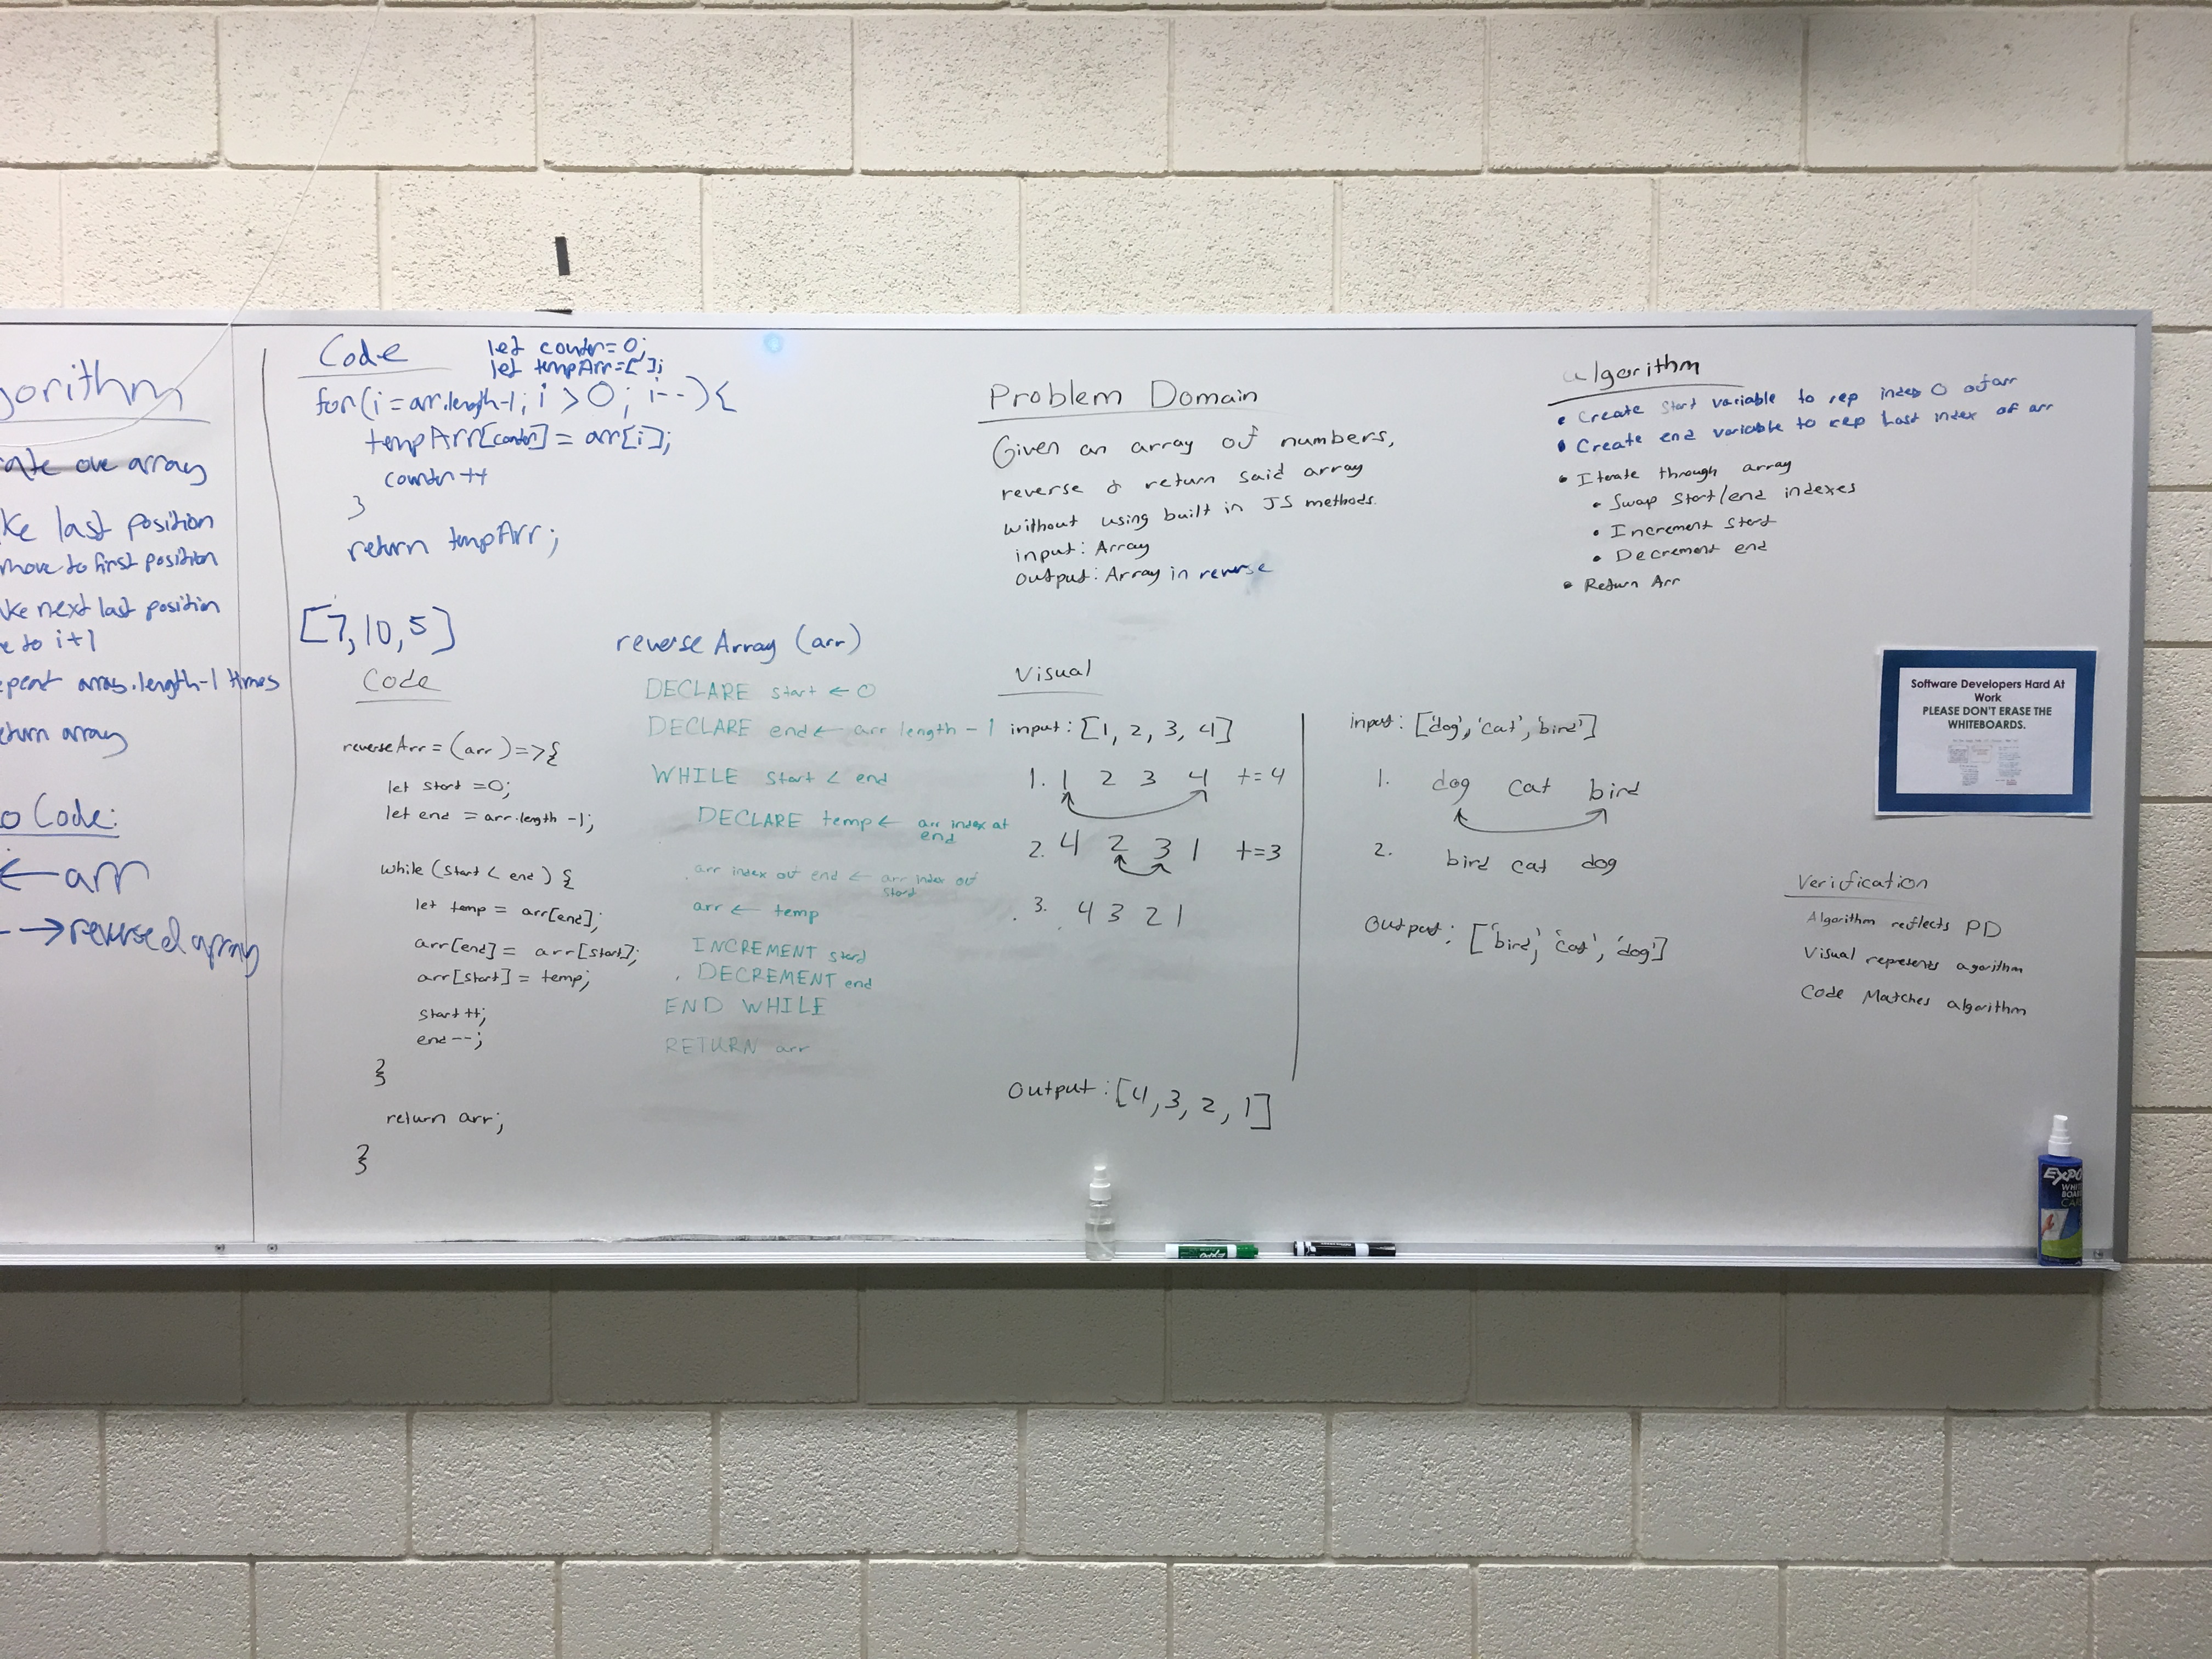 gorithm
rate over array
ke last position
move to first position
ke next last position
e to i+1
epeat array.length-1 times
eturn array
o Code:
← arr
--→ reversed array
Code
let countr=0;
let tempArr=[''];
for(i=arr.length-1; i>0; i--){
tempArr[countr]=arr[i];
countr++
}
return tempArr;
[7,10,5]
Code
reverseArr = (arr)=>{
let start =0;
let end = arr.length -1;
while (start < end) {
let temp = arr[end];
arr[end] = arr[start];
arr[start] = temp;
start++;
end--;
}
return arr;
}
reverse Array (arr)
DECLARE start ← 0
DECLARE end ← arr length - 1
WHILE start < end
DECLARE temp ← arr index at
end
arr index of end ← arr index of
start
arr ← temp
INCREMENT start
DECREMENT end
END WHILE
RETURN arr
Problem Domain
Given an array of numbers,
reverse & return said array
without using built in JS methods.
input: Array
output: Array in reverse
Visual
input: [1, 2, 3, 4]
1. 1 2 3 4 t=4
2. 4 2 3 1 t=3
3. 4 3 2 1
Output: [4, 3, 2, 1]
input: ['dog', 'cat', 'bird']
1. dog cat bird
2. bird cat dog
Output: ['bird', 'cat', 'dog']
algorithm
• Create start variable to rep index 0 of arr
• Create end variable to rep last index of arr
• Iterate through array
• Swap start/end indexes
• Increment start
• Decrement end
• Return Arr
Software Developers Hard At
Work
PLEASE DON'T ERASE THE
WHITEBOARDS.
Verification
Algorithm reflects PD
Visual represents agorithm
Code Matches algorithm
EXPO